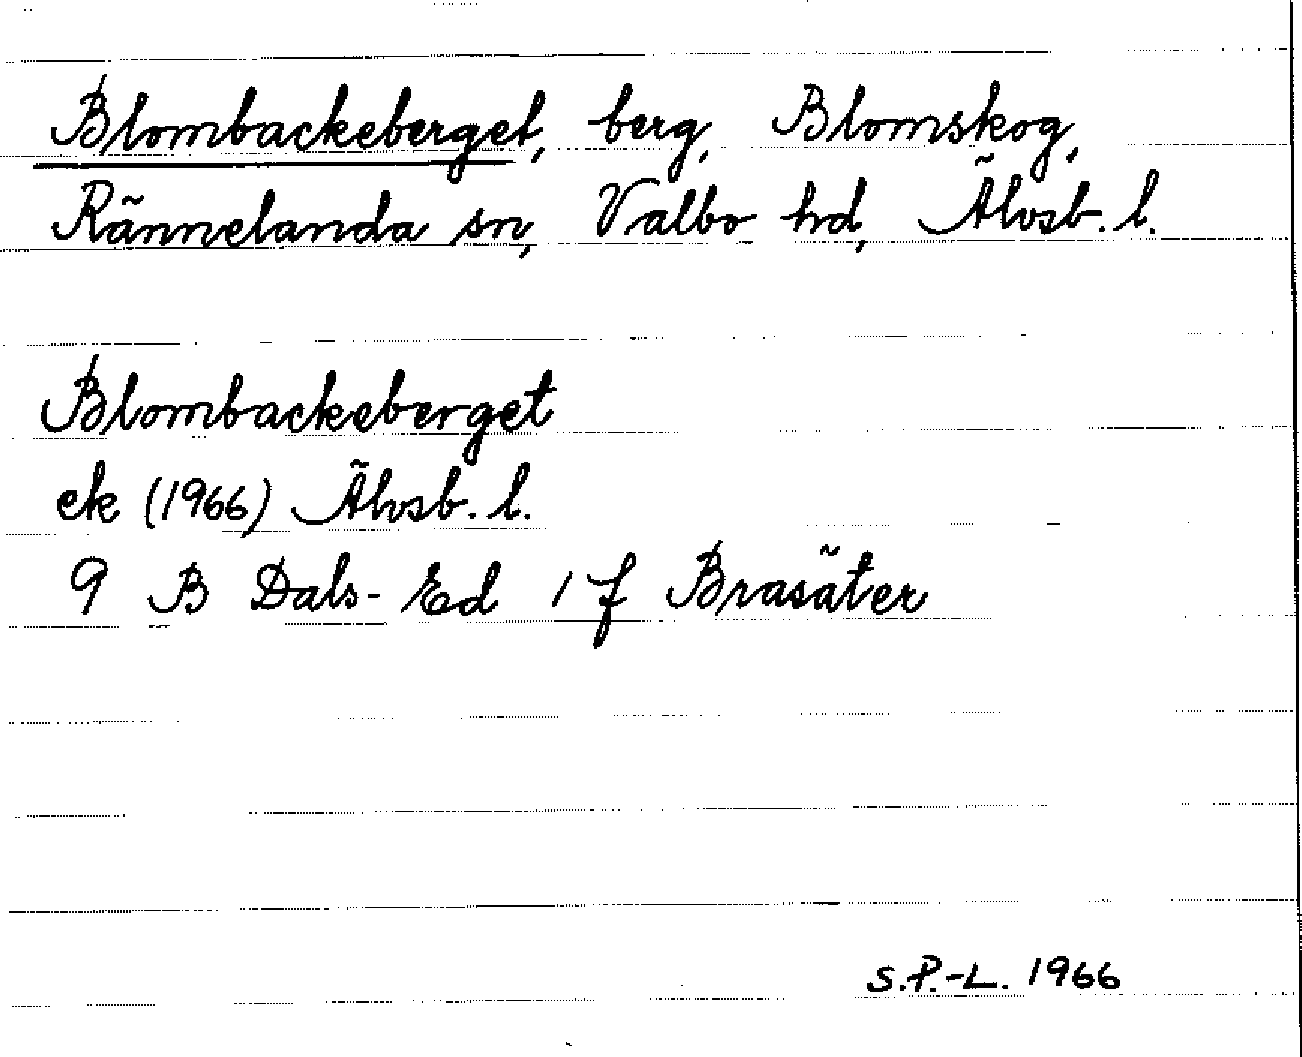 Blombackeberget, berg, Blomskog,
Rännelanda sn, Valbo hd, Älvsb. l.
Blombackeberget
ek (1966) Älvsb. l.
9 B Dals-Ed 1 f Brasäter
S.P.-L. 1966